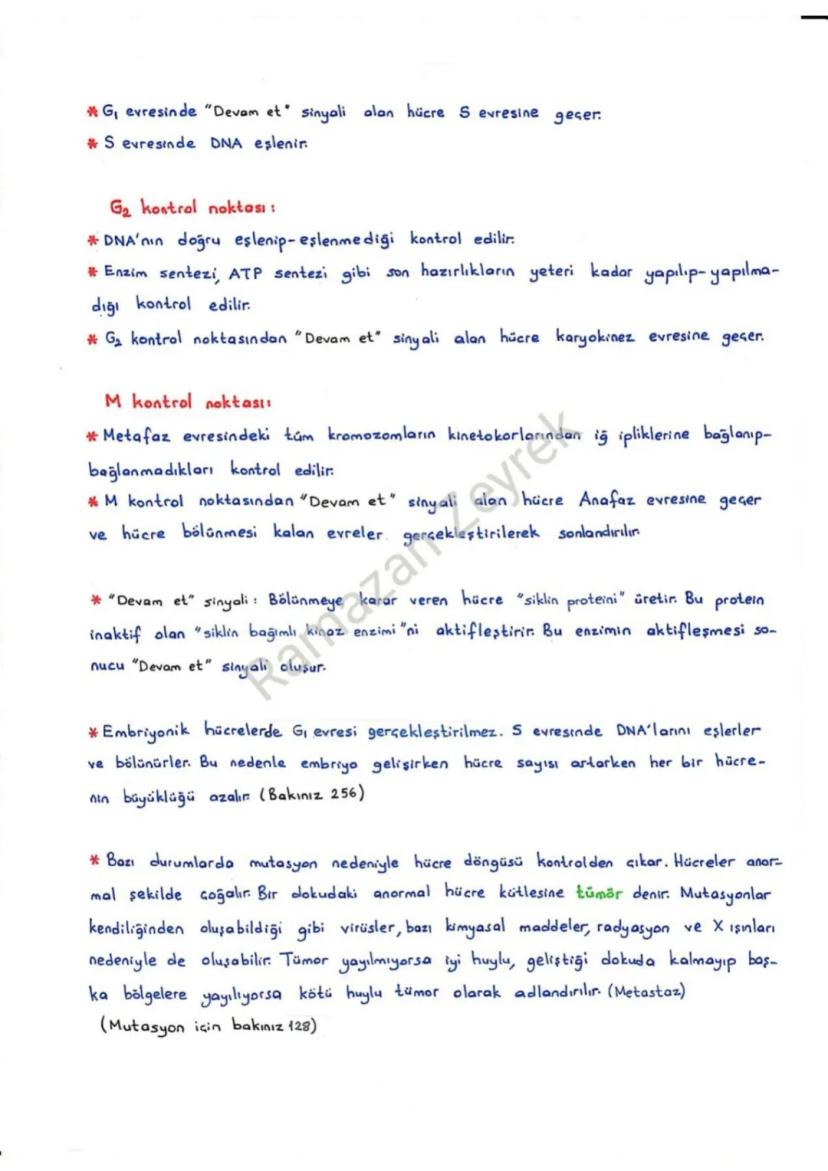 * G₁ evresinde "Devam et" sinyali alan hücre S evresine geçer.
* S evresinde DNA eşlenir.
G₂ kontrol noktası:
* DNA'nın doğru eşlenip-eşlenmediği kontrol edilir.
* Enzim sentezi, ATP sentezi gibi son hazırlıkların yeteri kadar yapılıp-yapılma-
dığı kontrol edilir.
* G₂ kontrol noktasından "Devam et" sinyali alan hücre karyokinez evresine geçer.
M kontrol noktası:
* Metafaz evresindeki tüm kromozomların kinetokorlarından iğ ipliklerine bağlanıp-
bağlanmadıkları kontrol edilir.
* M kontrol noktasından "Devam et" sinyali alan hücre Anafaz evresine geçer
ve hücre bölünmesi kalan evreler gerçekleştirilerek sonlandırılır.
* "Devam et" sinyali: Bölünmeye karar veren hücre "siklin proteini" üretir. Bu protein
inaktif olan "siklin bağımlı kinaz enzimi"ni aktifleştirir. Bu enzimin aktifleşmesi so-
nucu "Devam et" sinyali oluşur.
* Embriyonik hücrelerde G₁ evresi gerçekleştirilmez. S evresinde DNA'larını eşlerler
ve bölünürler. Bu nedenle embriyo gelişirken hücre sayısı artarken her bir hücre-
nin büyüklüğü azalır. (Bakınız 256)
* Bazı durumlarda mutasyon nedeniyle hücre döngüsü kontrolden çıkar. Hücreler anor-
mal şekilde çoğalır. Bir dokudaki anormal hücre kütlesine tümör denir. Mutasyonlar
kendiliğinden oluşabildiği gibi virüsler, bazı kimyasal maddeler, radyasyon ve X ışınları
nedeniyle de oluşabilir. Tümör yayılmıyorsa iyi huylu, geliştiği dokuda kalmayıp baş-
ka bölgelere yayılıyorsa kötü huylu tümör olarak adlandırılır. (Metastaz)
(Mutasyon için bakınız 128)
Ramazan Zeyrek